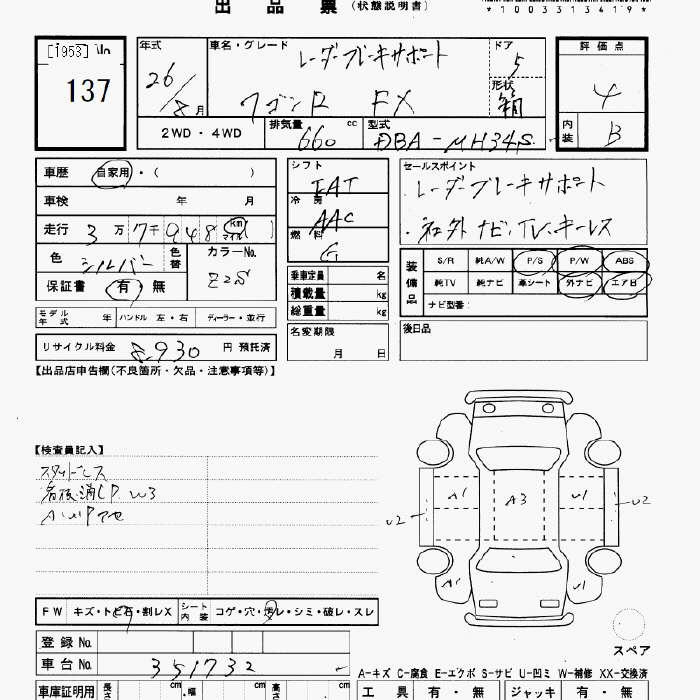 出品票 (状態説明書)
*1003313419*
[1953]
137
年式 26/8月
車名・グレード レーダーブレーキサポート
ワゴンR FX
ドア 5
形状 箱
評価点 4
内装 B
2WD・4WD
排気量 660 cc
型式 DBA-MH34S
車歴 自家用・( )
車検 年 月
走行 3万7千948 km マイル
色 シルバー 色替
カラーNo. Z2S
保証書 有・無
モデル年式 年 ハンドル 左・右 ディーラー・並行
リサイクル料金 8,930 円 預託済
シフト FAT
冷房 AAC
燃料 G
乗車定員 名
積載量 kg
総重量 kg
名変期限
月 日
セールスポイント
・レーダーブレーキサポート
・社外ナビ・TV、キーレス
装備品
S/R 純A/W P/S P/W ABS
純TV 純ナビ 革シート 外ナビ エアB
ナビ型番:
後日品
【出品店申告欄(不良箇所・欠品・注意事項等)】
【検査員記入】
W3
FW キズ・トビ石・割レX シート内装 コゲ・穴・汚レ・シミ・破レ・スレ
登録No.
車台No. 351732
車庫証明用 長さ cm ・幅 cm 高さ cm
A1
A3
U1
U2
U2
A1
U1
スペア
A-キズ C-腐食 E-エクボ S-サビ U-凹ミ W-補修 XX-交換済
工具 有・無 ジャッキ 有・無